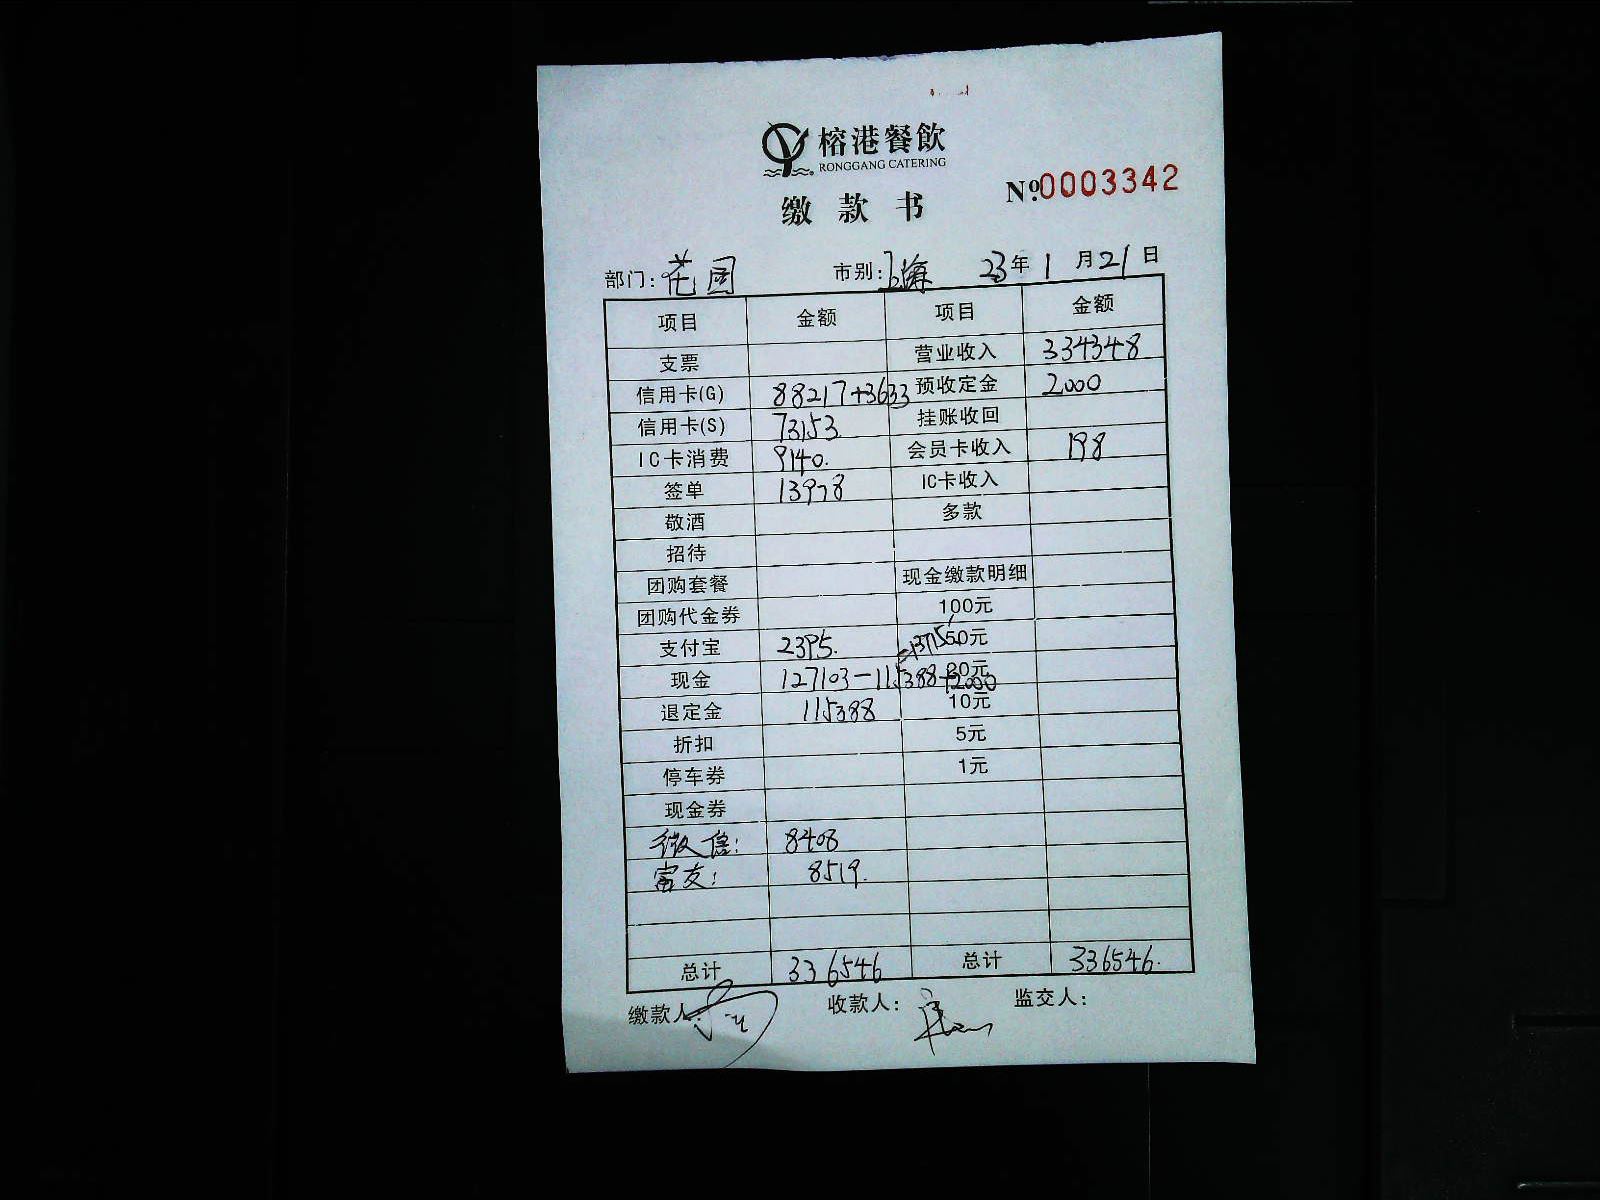 榕港餐飲
RONGGANG CATERING
缴款书
№.0003342
部门：花园 市别：上海 23年1月21日
项目 金额 项目 金额
支票 营业收入 334348
信用卡(G) 88217+3633 预收定金 2000
信用卡(S) 73153 挂账收回
IC卡消费 9140. 会员卡收入 198
签单 13978 IC卡收入
敬酒 多款
招待
团购套餐 现金缴款明细
团购代金券 100元
支付宝 2395. =13715 50元
现金 127103-115388+2000 20元
退定金 115388 10元
折扣 5元
停车券 1元
现金券
微信： 8408
富友： 8519.
总计 336546 总计 336546.
缴款人： 收款人： 监交人：